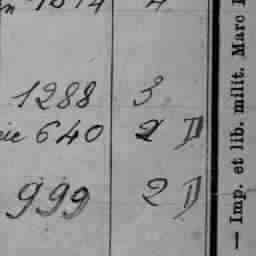 1288 3
640 2 D
999 2 D
— Imp. et lib. milit. Marc